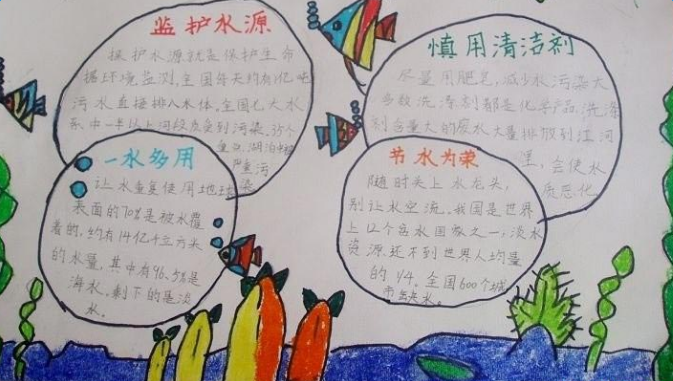 监护水源
保护水源就是保护生命
据环境监测,全国每天约有1亿吨
污水直接排入水体,全国七大水
系中一半以上河段受到污染,35个
重点湖泊中
严重污
染
慎用清洁剂
尽量用肥皂,减少水污染大
多数洗涤剂都是化学产品,洗涤
剂含量大的废水大量排放到江河
里,会使水
质恶化
一水多用
让水重复使用地球
表面的70%是被水覆
着的,约有14亿千立方米
的水量,其中有96.5%是
海水,剩下的是淡
水.
节水为荣
随时关上水龙头,
别让水空流,我国是世界
上12个贫水国家之一,淡水
资源还不到世界人均量
的1/4.全国600个城
市缺水.